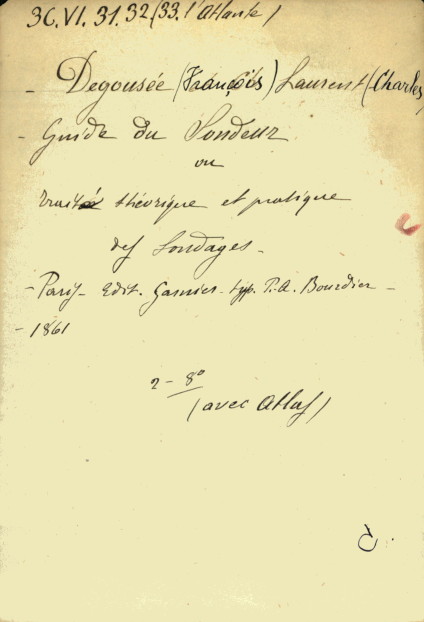 36.VI.31.32/33.(Atlante)
- Degousée (François) Laurent (Charles)
- Guide du Sondeur
ou
traité théorique et pratique
des Sondages -
- Paris - Edit. Garnier - typ. P.-A. Bourdier -
- 1861
2 - 8º
(avec Atlas)